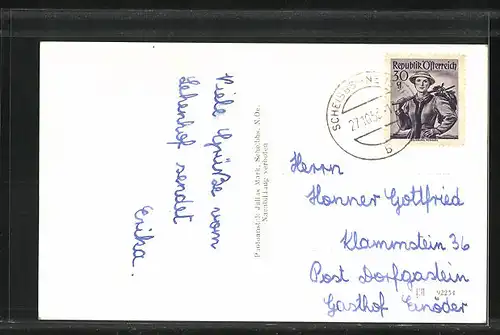 Viele Grüße vom
Lehenhof sendet
Erika.
Photoanstalt Julius Mark, Scheibbs, N.Oe.
Nachbildung verboten
REPUBLIK ÖSTERREICH
30 g
SCHEIBBS
27.10.5
b
Herrn
Honner Gottfried
Klammstein 36
Post Dorfgastein
Gasthof Einöder
92254